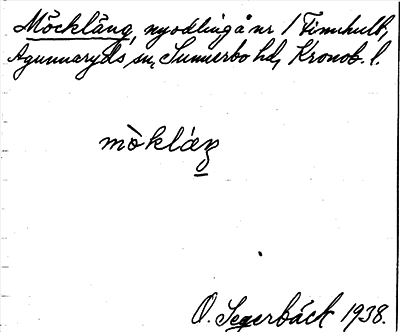 Möckläng, nyodling å nr 1 Finnhult,
Agunnaryds sn, Sunnerbo hd, Kronob. l.
mòklǽŋ
O. Segerbäck 1938.